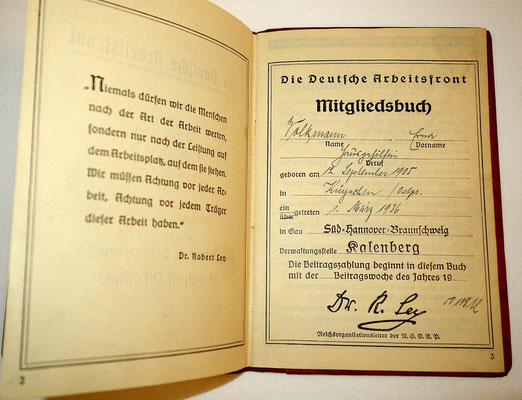 „Niemals dürfen wir die Menschen
nach der Art der Arbeit werten,
sondern nur nach der Leistung auf
dem Arbeitsplatz, auf dem sie stehen.
Wir müssen Achtung vor jeder Ar-
beit, Achtung vor jedem Träger
dieser Arbeit haben.“
Dr. Robert Ley
2
Die Deutsche Arbeitsfront
Mitgliedsbuch
Volkmann Erna
Name Vorname
Hausgehilfin
Beruf
geboren am 12. September 1905
in
ein getreten 1. März 1936
über
in Gau Süd-Hannover-Braunschweig
Verwaltungsstelle Kalenberg
Die Beitragszahlung beginnt in diesem Buch
mit der Beitragswoche des Jahres 19
Dr. R. Ley
Reichsorganisationsleiter der N.S.D.A.P.
3